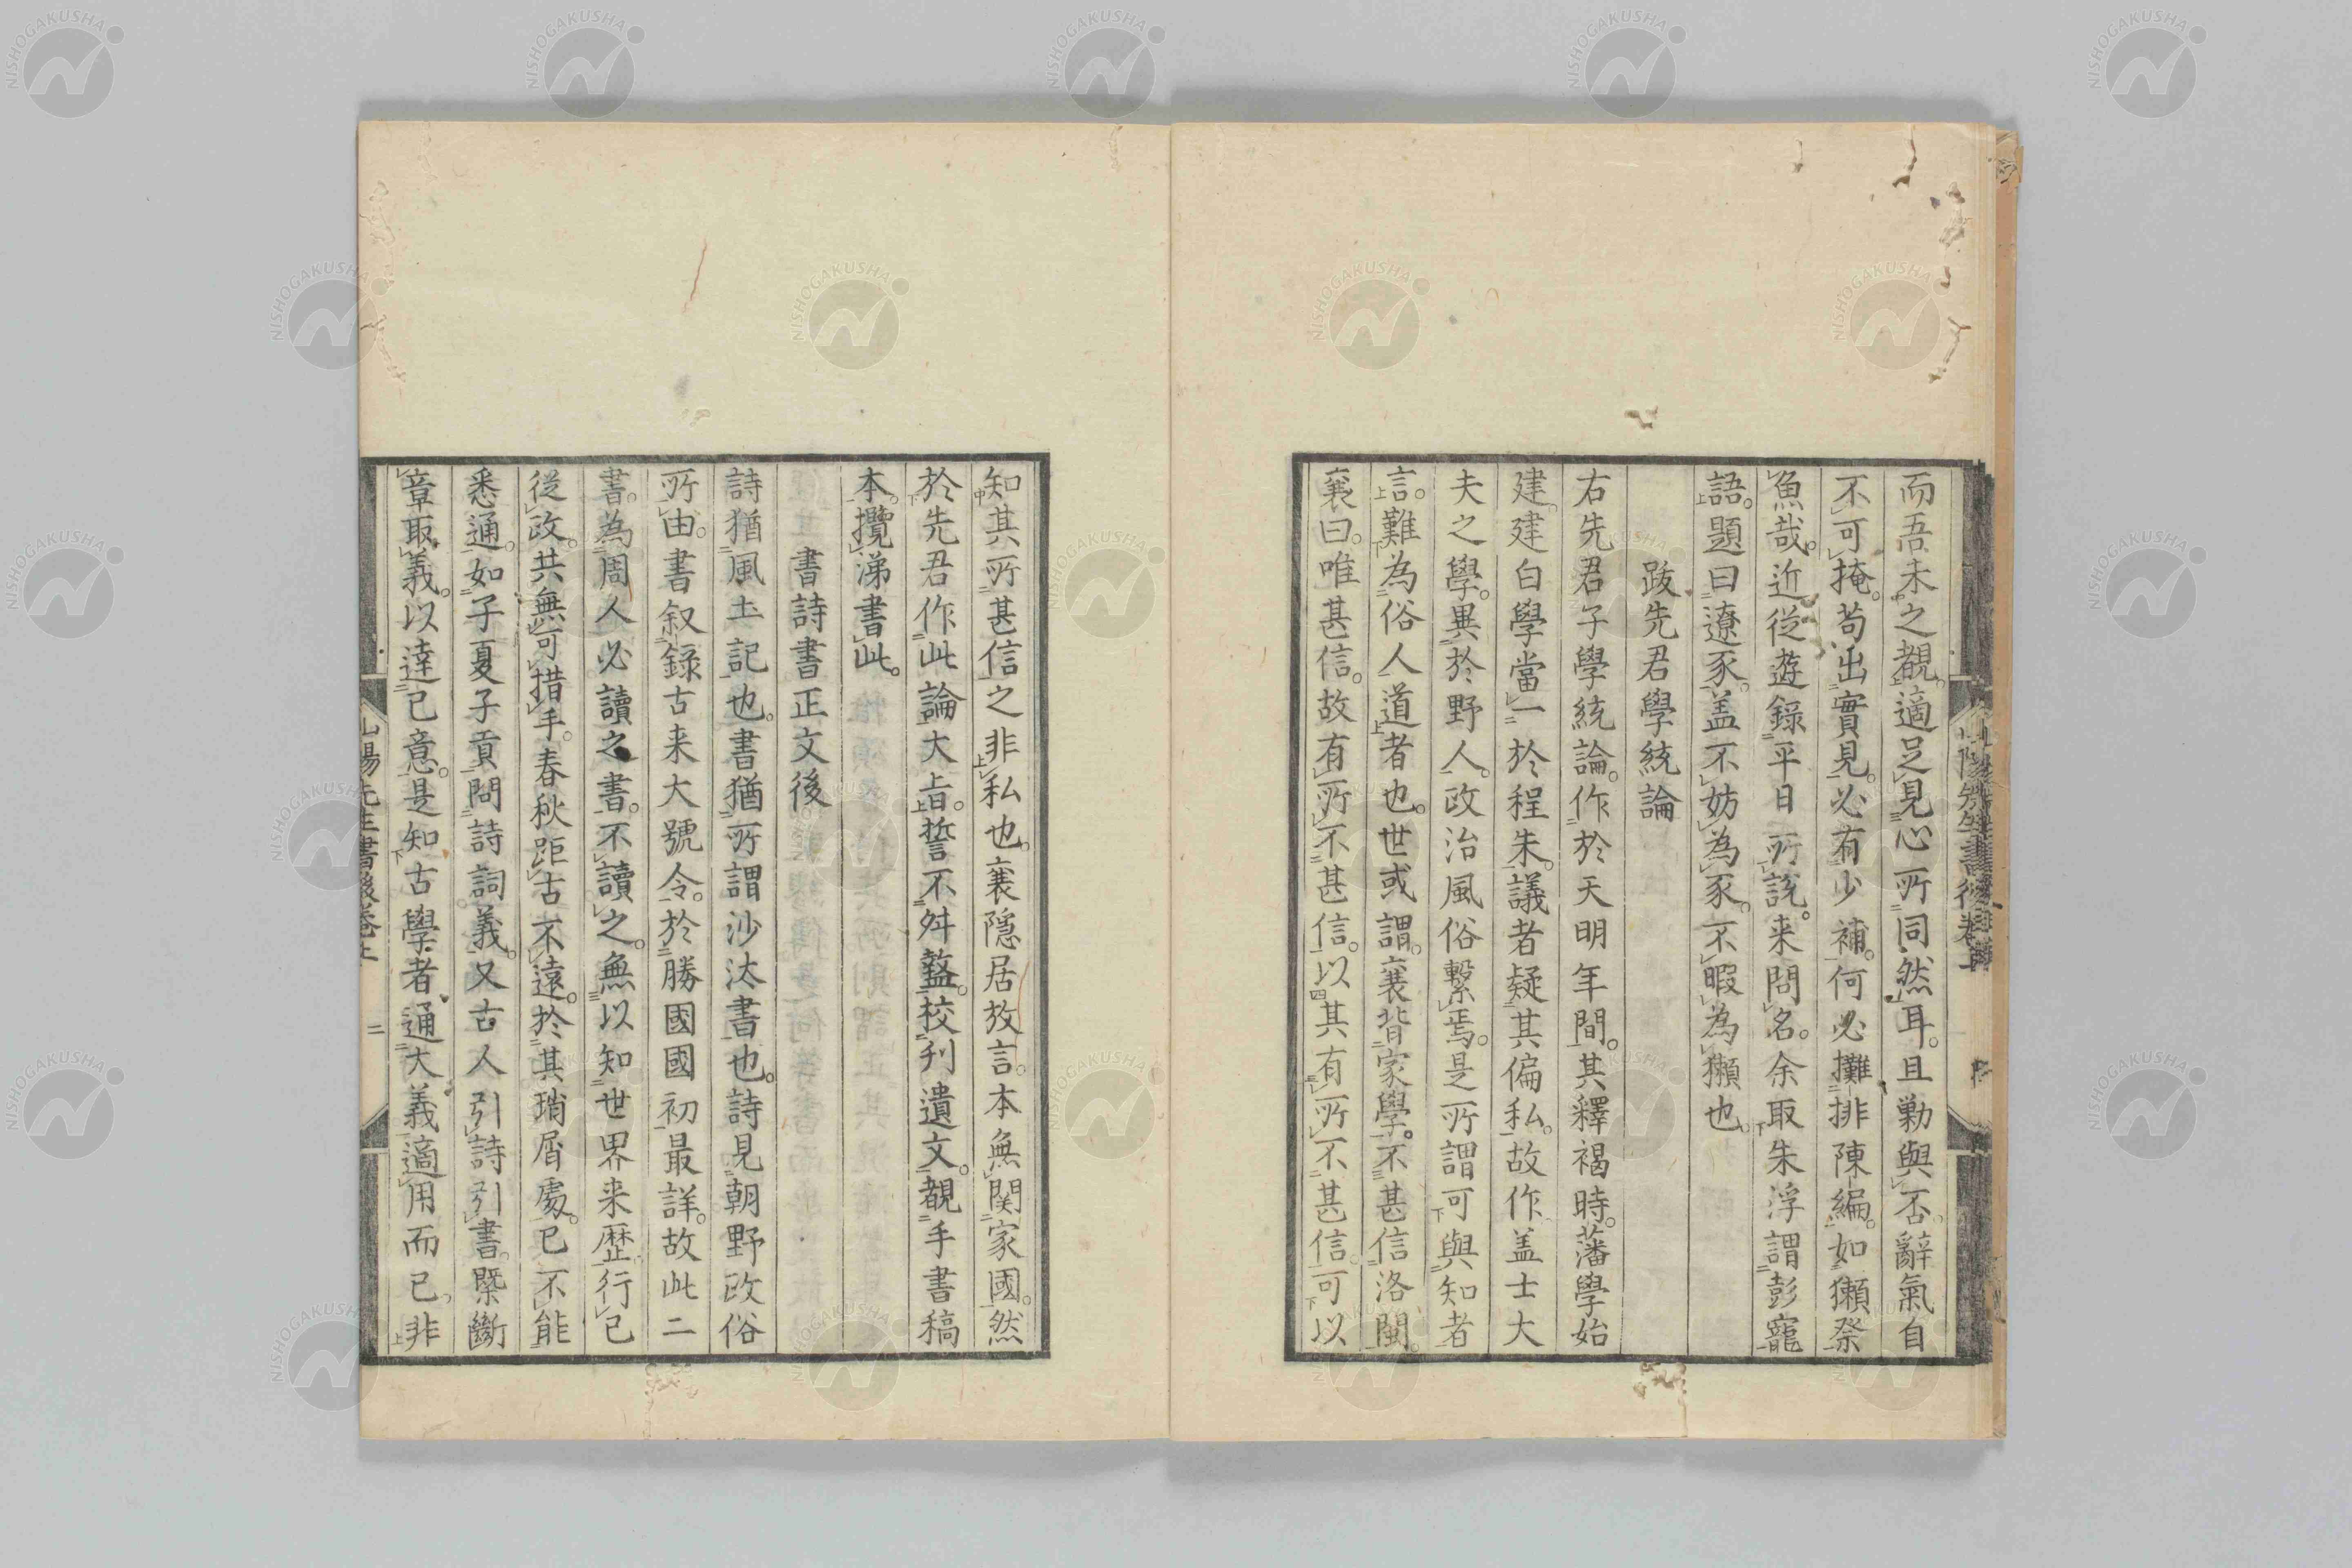 而吾未之覩。適足見心所同然耳。且勦與否。辭氣自
不可掩。苟出實見。必有少補。何必攤排陳編。如獺祭
魚哉。近從遊錄平日所説。来問名。余取朱浮謂彭寵
語。題曰遼豕。盖不妨為豕。不暇為獺也。
跋先君學統論
右先君子學統論。作於天明年間。其釋褐時。藩學始
建。建白學當一於程朱。議者疑其偏私。故作盖士大
夫之學。異於野人。政治風俗繫焉。是所謂可與知者
言。難為俗人道者也。世或謂。襄背家學。不甚信洛閩。
襄曰。唯甚信。故有所不甚信。以其有所不甚信。可以
知其所甚信之非私也。襄隠居放言。本無関家國。然
於先君作此論大旨。誓不舛盭。校刊遺文。覩手書稿
本。攬涕書此。
書詩書正文後
詩猶風土記也。書猶所謂沙汰書也。詩見朝野政俗
所由。書叙錄古来大號令。於勝國國初最詳。故此二
書。為周人必讀之書。不讀之。無以知世界来歴行已
從政。共無可措手。春秋距古不遠。於其瑣屑處。已不能
悉通。如子夏子貢問詩詞義。又古人引詩引書。槩斷
章取義。以達已意。是知古學者通大義適用而已。非
山陽先生書後巻上
二
NISHOGAKUSHA